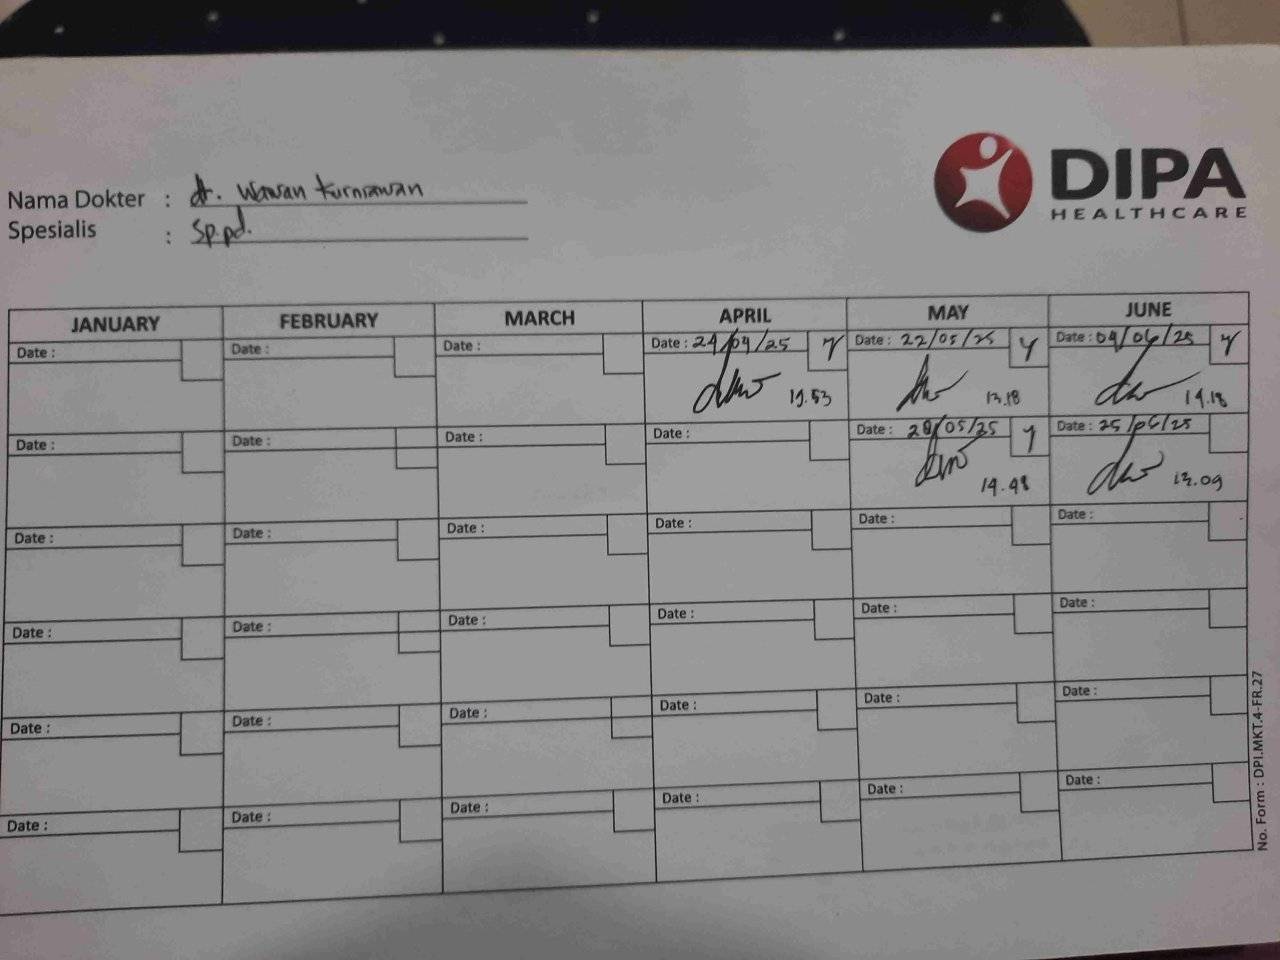 DIPA
HEALTHCARE
Nama Dokter : dr. Wawan Kurniawan
Spesialis : Sp.pd.
JANUARY FEBRUARY MARCH APRIL MAY JUNE
Date : Date : Date : Date : 24/04/25 Date : 22/05/25 Y Date : 04/06/25
13.18 14.18
Date : Date : Date : Date : Date : 28/05/25 Y Date : 25/06/25
14.48 13.09
Date : Date : Date : Date : Date : Date :
Date : Date : Date : Date : Date : Date :
Date : Date : Date : Date : Date : Date :
Date : Date : Date : Date : Date : Date :
No. Form : DPI.MKT.4-FR.27